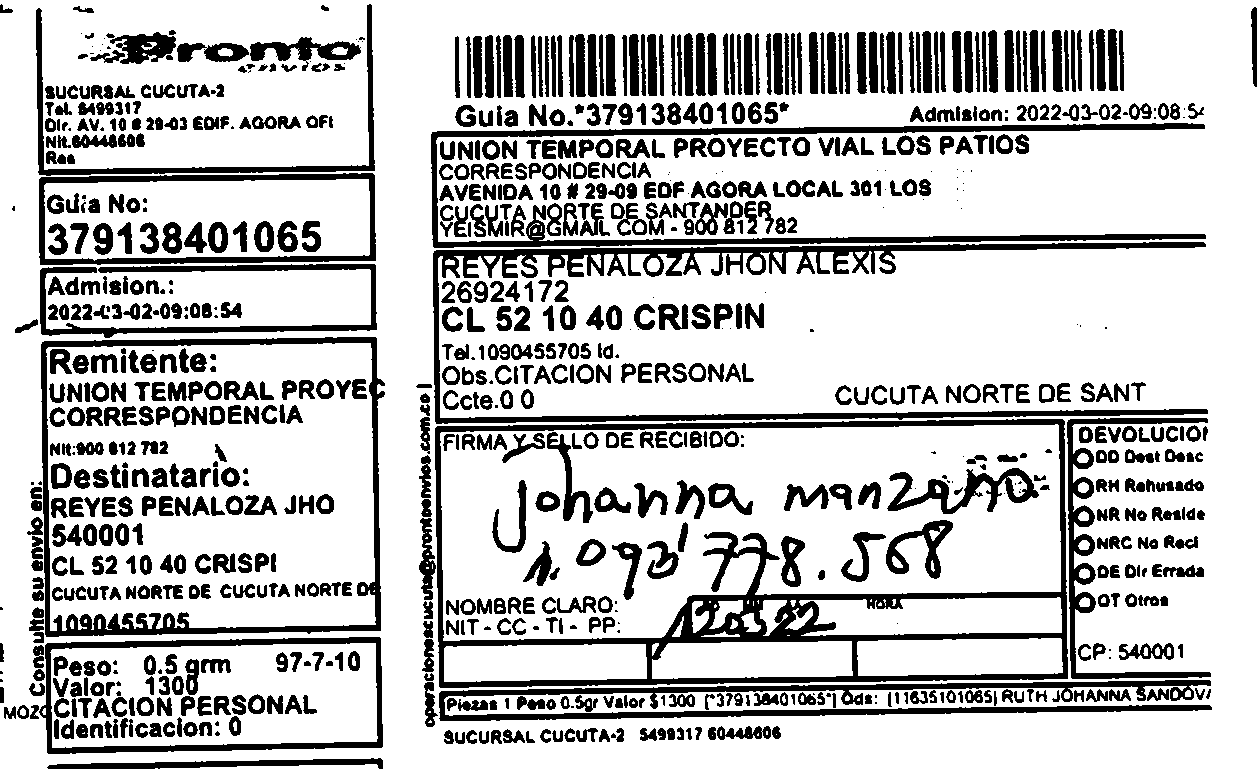 Pronto
envios
SUCURSAL CUCUTA-2
Tel. 5499317
Dir. AV. 10 # 29-03 EDIF. AGORA OFI
Nit.60448606
Res
Guia No:
379138401065
Admision.:
2022-03-02-09:08:54
Remitente:
UNION TEMPORAL PROYEC
CORRESPONDENCIA
Nit:900 812 782
Destinatario:
REYES PENALOZA JHO
540001
CL 52 10 40 CRISPI
CUCUTA NORTE DE CUCUTA NORTE DE
1090455705
Peso: 0.5 grm 97-7-10
Valor: 1300
CITACION PERSONAL
Identificacion: 0
Consulte su envio en:
MOZO
Guia No.*379138401065*
Admision: 2022-03-02-09:08:54
UNION TEMPORAL PROYECTO VIAL LOS PATIOS
CORRESPONDENCIA
AVENIDA 10 # 29-09 EDF AGORA LOCAL 301 LOS
CUCUTA NORTE DE SANTANDER
YEISMIR@GMAIL COM - 900 812 782
REYES PENALOZA JHON ALEXIS
26924172
CL 52 10 40 CRISPIN
Tel.1090455705 Id.
Obs.CITACION PERSONAL
Ccte.0 0
CUCUTA NORTE DE SANT
operacionescucuta@prontoenvios.com.co |
FIRMA Y SELLO DE RECIBIDO:
Johanna manzano.
NOMBRE CLARO:
NIT - CC - TI - PP:
HORA
DEVOLUCION
DD Dest Desc
RH Rehusado
NR No Reside
NRC No Recl
DE Dir Errada
OT Otros
CP: 540001
Piezas 1 Peso 0.5gr Valor $1300 [*379138401065*] Ods: [11635101065] RUTH JOHANNA SANDOVA
SUCURSAL CUCUTA-2 5499317 60448606